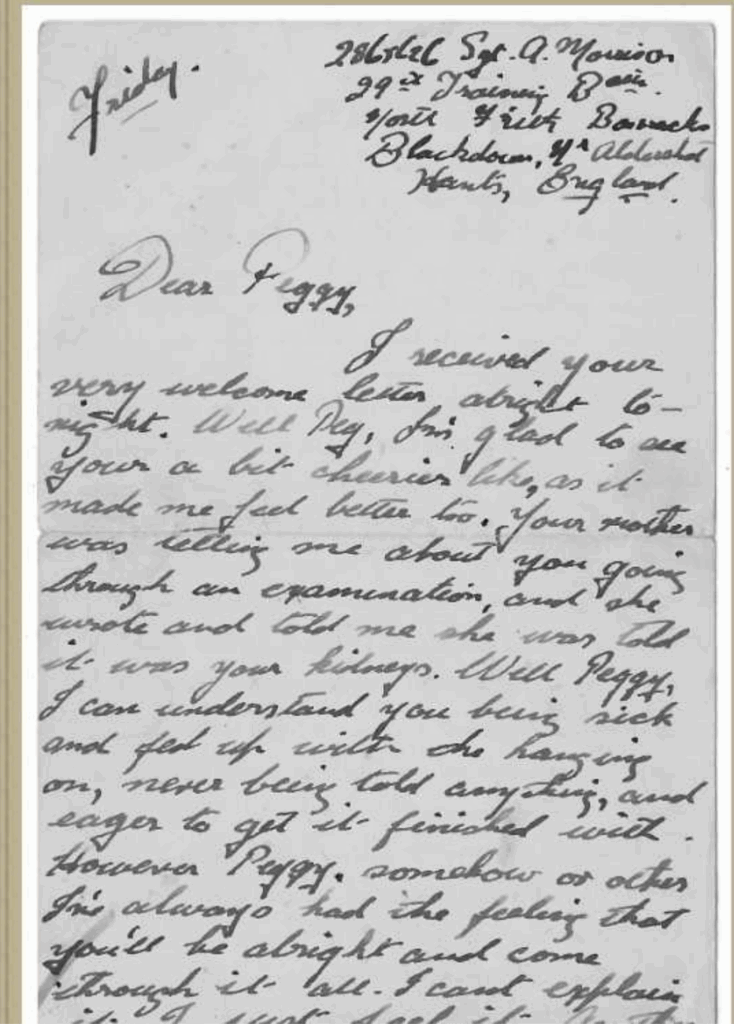 Friday.
Sgt. A. Morrison
29th Training Battn.
North Frith Barracks
Blackdown, Nr Aldershot
Hants, England.
Dear Peggy,
I received your
very welcome letter alright to-
night. Well Peg, I'm glad to see
your a bit cheerier like, as it
made me feel better too. Your mother
was telling me about you going
through an examination, and she
wrote and told me she was told
it was your kidneys. Well Peggy,
I can understand you being sick
and fed up with the hanging
on, never being told anything, and
eager to get it finished with.
However Peggy. somehow or other
I've always had the feeling that
you'll be alright and come
through it all. I cant explain
it I just feel it.